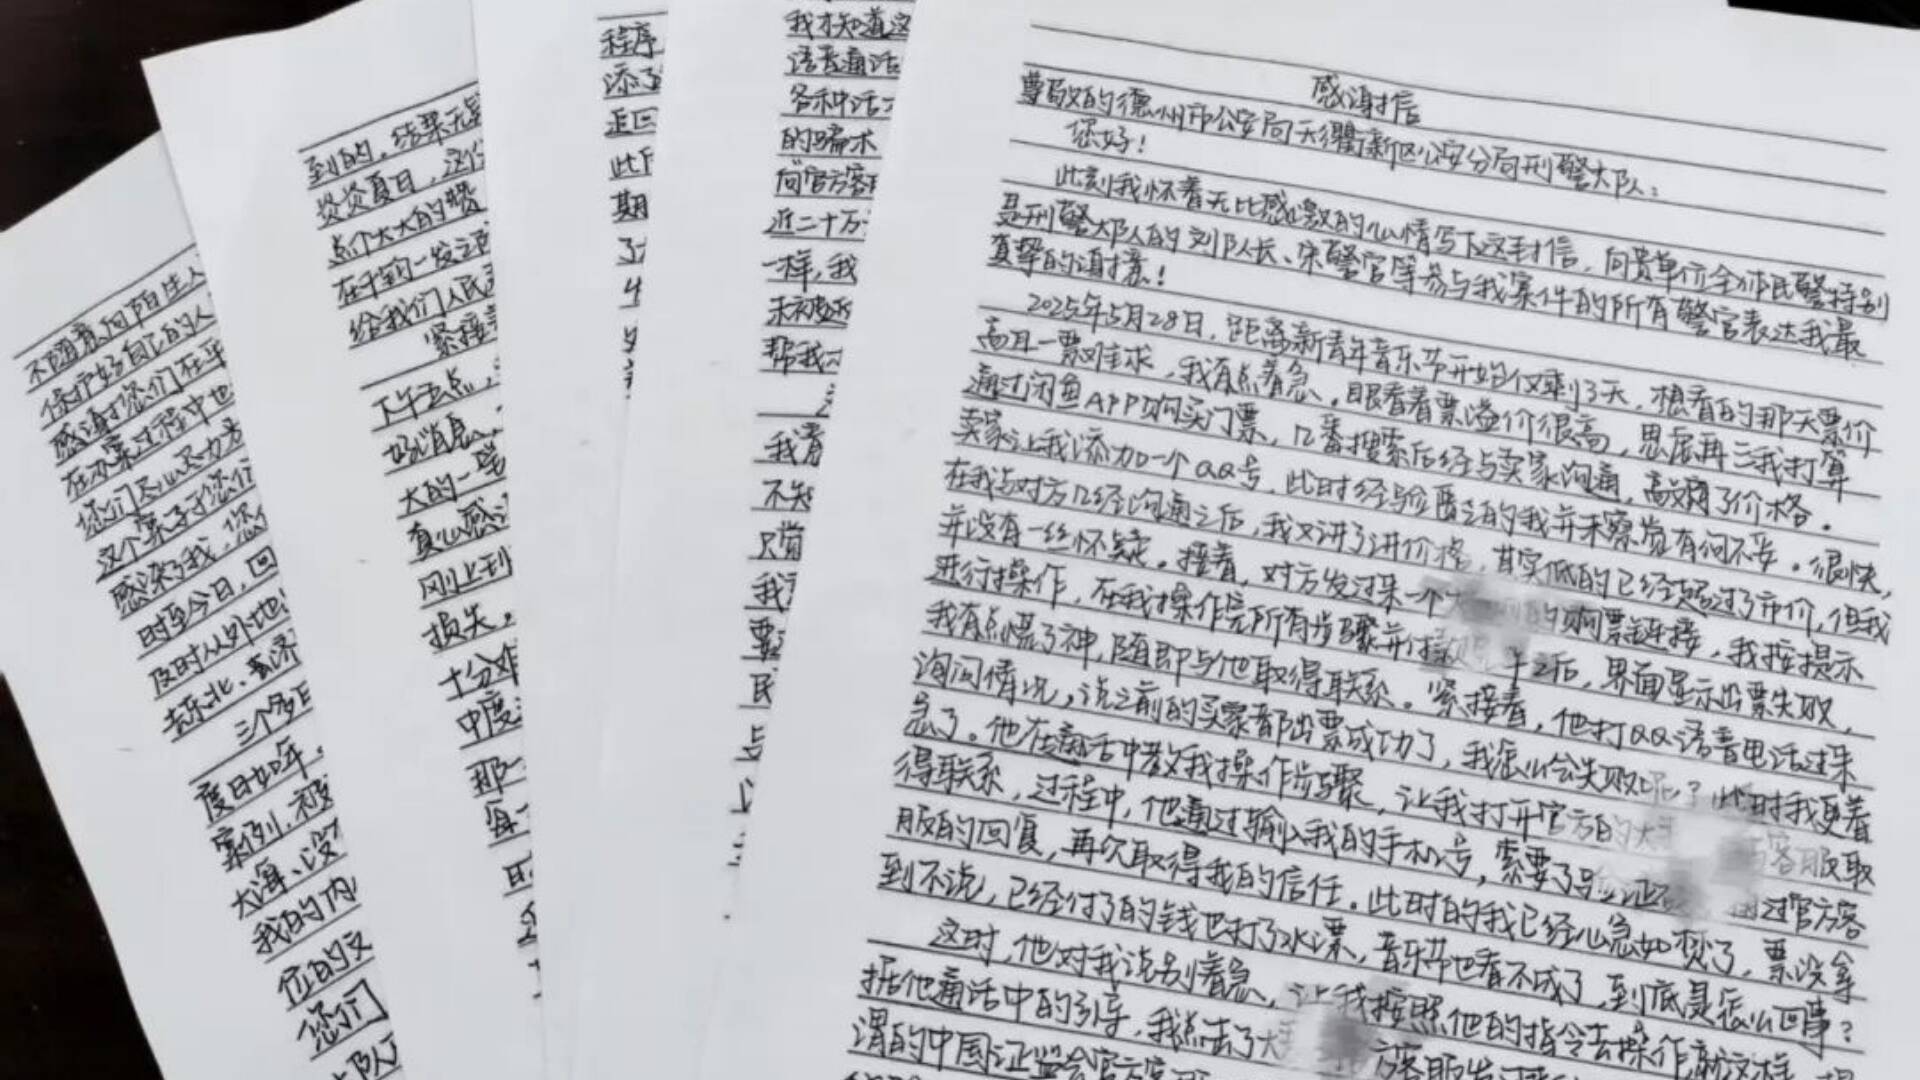 感谢信
尊敬的德州市公安局天衢新区公安分局刑警大队：
您好！
此刻我怀着无比感激的心情写下这封信，向贵单位全体民警特别
是刑警大队的刘队长、宋警官等参与我案件的所有警官表达我最
真挚的谢意！
2025年5月28日，距离新青年音乐节开始仅剩3天，想看的那天票价
高且一票难求，我有点着急。眼看着票溢价很高，思虑再三我打算
通过闲鱼APP购买门票，几番搜索后经与卖家沟通，敲定了价格。
卖家让我添加一个QQ号，此时经验匮乏的我并未察觉有何不妥。很快，
在我与对方几经沟通之后，我又讲了讲价格，其实低的已经超过了市价，但我
并没有一丝怀疑。接着，对方发过来一个大 的购票链接，我按提示
进行操作，在我操作完所有步骤并付款 之后，界面显示出票失败，
我有点慌了神，随即与他取得联系。紧接着，他打QQ语音电话过来
询问情况，说之前的买家都出票成功了，我怎么会失败呢？此时我更着
急了。他在通话中教我操作步骤，让我打开官方的大 客服取
得联系，过程中，他通过输入我的手机号，索要了验证 通过官方客
服的回复，再次取得我的信任。此时的我已经心急如焚了，票没拿
到不说，已经付了的钱也打了水漂，音乐节也看不成了，到底是怎么回事？
这时，他对我说别着急，让我按照他的指令去操作就这样，
据他通话中的引导，我点击了大 方客服发过
谓的中国证监会官方客服
我才知道这
语音通话
各种话
的骗术
向“官方客服
近二十万
一样，我
未被
帮我
我看
不知
只觉
我
票
民
与
程序
添了
追回
此
期
了
到的，结果无
炎炎夏日，这
点个大大的赞
在千钧一发之
给我们人民
紧接着
下午五点，
好消息
大的一笔
真心感
刚上到
损失。
十分难
中度
那一
每
不随意向陌生人
保护好自己的人
感谢您们在平
在办案过程中也
您们尽心尽力
这个案子于您们
感染了我，您
时至今日，回
及时从外地
去东北、去济
三个多月
度日如年。
案例，被
大海、没
我的内
位的文
您们
队